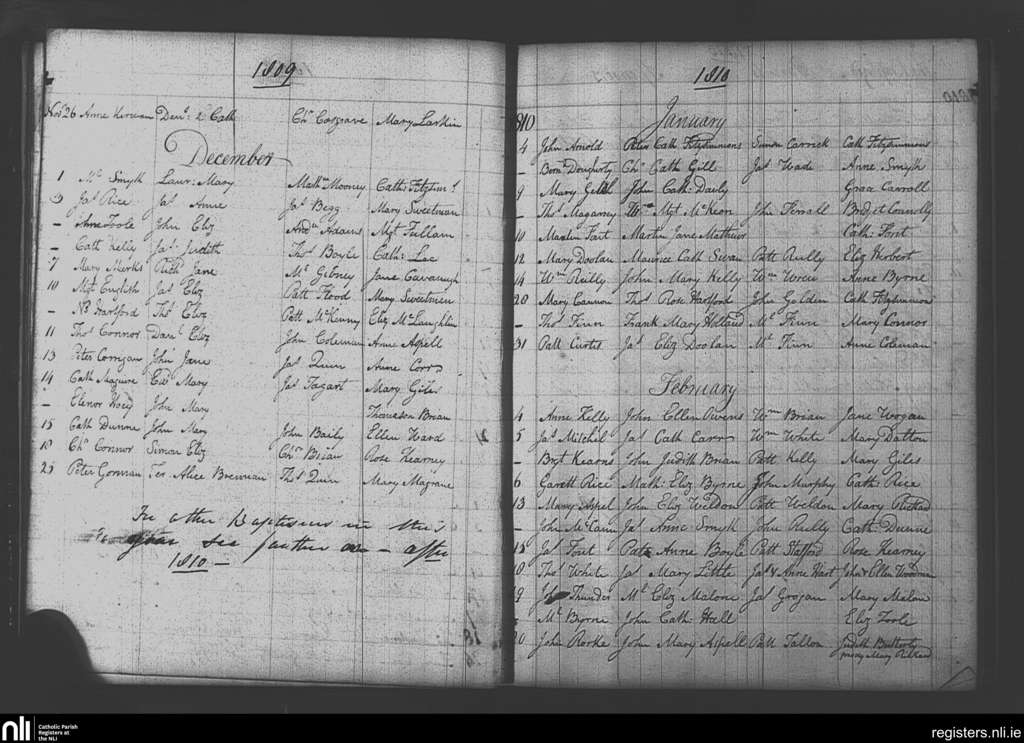 1809
Novr 26 Anne Kirwan Denis & Cath Chr Cosgrave Mary Larkin
December
1 Ml Smyth Laur: Mary Mathw Mooney Cath: Fitzsim
Jas Rice Jas Anne Jas Begg Mary Sweetman
- Anne Toole John Eliz Andw Adams Mgt Fullam
- Cath Kelly Jas Judith Thos Boyle Cath: Lee
7 Mary Richd Jane Ml Gibney Jane Cavanagh
10 Mgt English Jas Eliz Patt Flood Mary Sweetman
- Hartford Thos Eliz Patt McKenny Eliz McLaughlin
11 Thos Connor Danl Eliz John Coleman Anne Aspell
13 Peter Corrigan John Jane Jas Quinn Anne Corr
14 Cath Maguire Edd Mary Jas Tagart Mary Giles
- Elenor Hoey John Mary Brian
15 Cath Dunne John Mary John Baily Ellen Ward
18 Chr Connor Simon Eliz Chr Brian Rose Kearney
25 Peter Gorman Ter Alice Brennan Thos Quin Mary Magrane
For other Baptisms in this
year see farther on - after
1810 -
1810
1810 January
4 John Arnold Peter Cath Fitzsimmons Simon Carrick Cath Fitzsimmons
- Bern: Dougherty Chr Cath Gill Jas Wade Anne Smyth
9 Mary John Cath: Daily Grace Carroll
- Thos Magarrey Wm Mgt McKeon John Ferrall Bridget Connolly
10 Martin Fort Martin Jane Mathews Cath: Foret
12 Mary Doolan Maurice Cath Swan Patt Reilly Eliz Herbert
14 Wm Reilly John Mary Kelly Wm Anne Byrne
20 Mary Cannon Thos Rose Hartford John Golden Cath Fitzsimmon
- Thos Finn Frank Mary Holland Ml Finn Mary Connor
31 Patt Curtis Jas Eliz Doolan Ml Finn Anne Coleman
February
4 Anne Kelly John Ellen Owens Wm Brian Jane Wogan
5 Jas Mitchel Jas Cath Carr Wm White Mary Dalton
- Bryt Kearns John Judith Brian Patt Kelly Mary Giles
6 Garett Rice Math: Eliz Byrne John Murphy Cath: Rice
13 Mary Aspel John Eliz Weldon Patt Weldon Mary
- John McCann Jas Anne Smyth John Reilly Cath: Duenne
15 Jas Foret Patk Anne Boyle Patt Stafford Rose Kearney
18 Thos White Jas Mary Little Jas & Anne Hart John & Ellen
19 John Thunder Ml Eliz Malone Jas Grogan Mary Malone
- Ml Byrne John Cath: Hall Eliz Toole
20 John Rorke John Mary Aspell Patt Fallon Judith Butterly
proxy Mary Rickard
nli Catholic Parish
Registers at
the NLI
registers.nli.ie